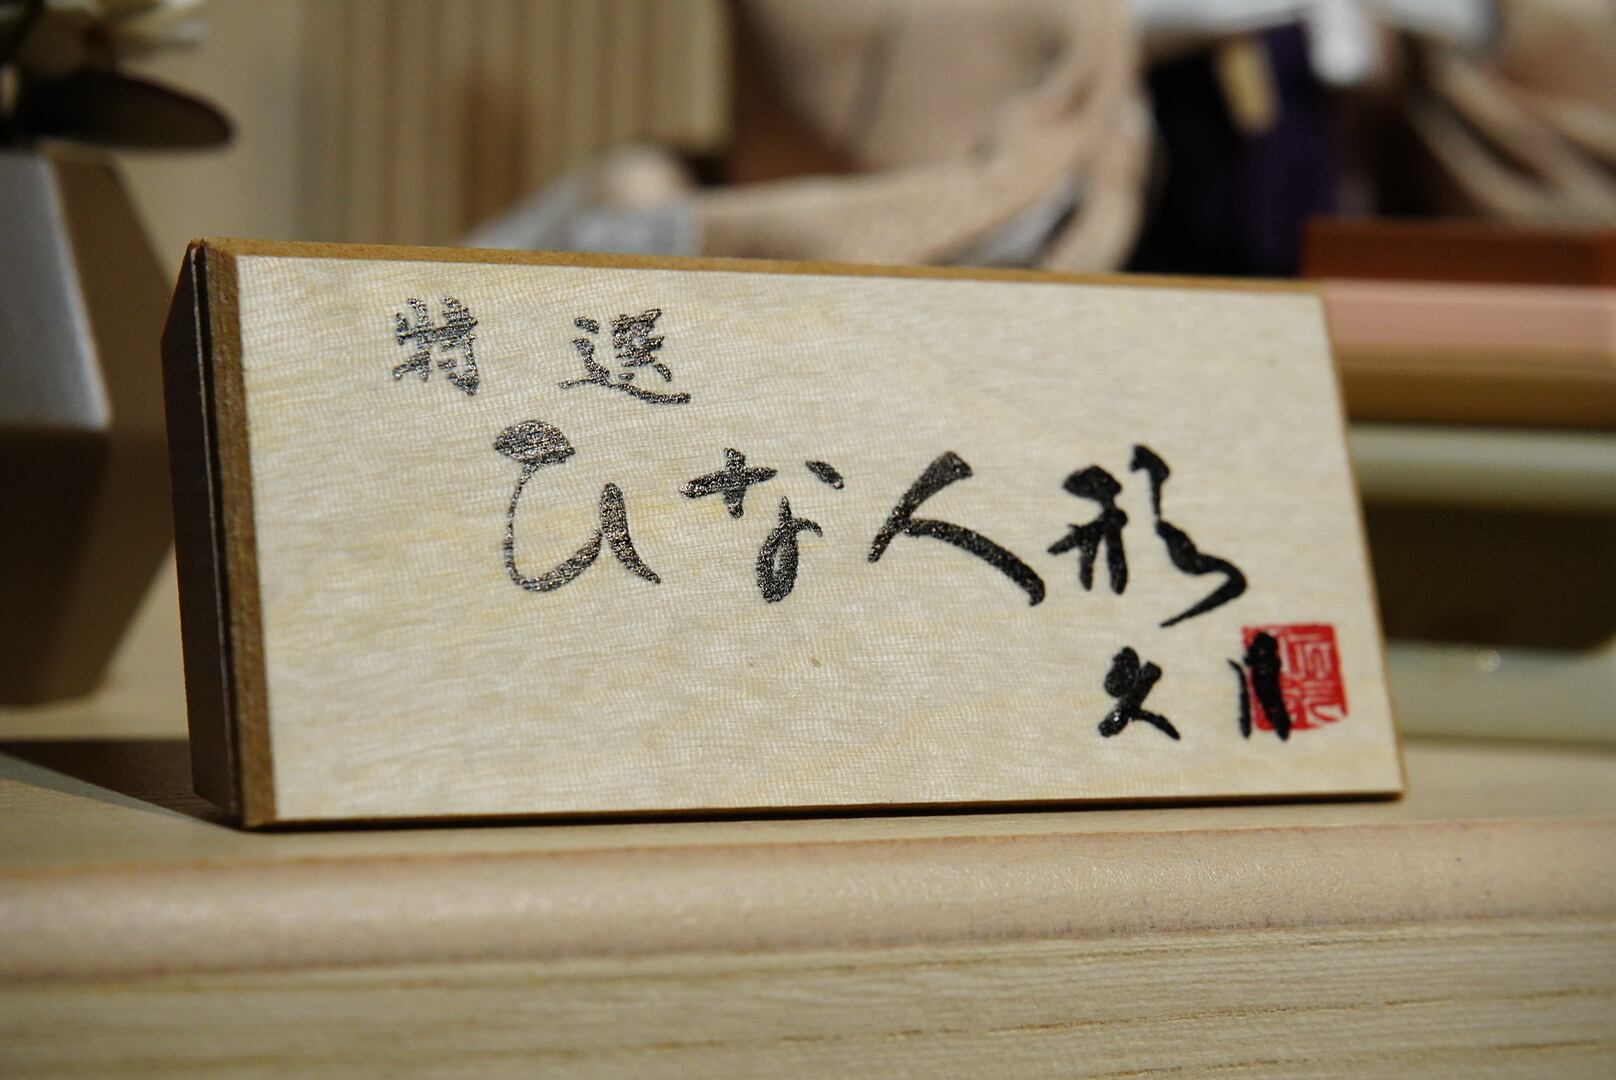 特選
ひな人形
久月